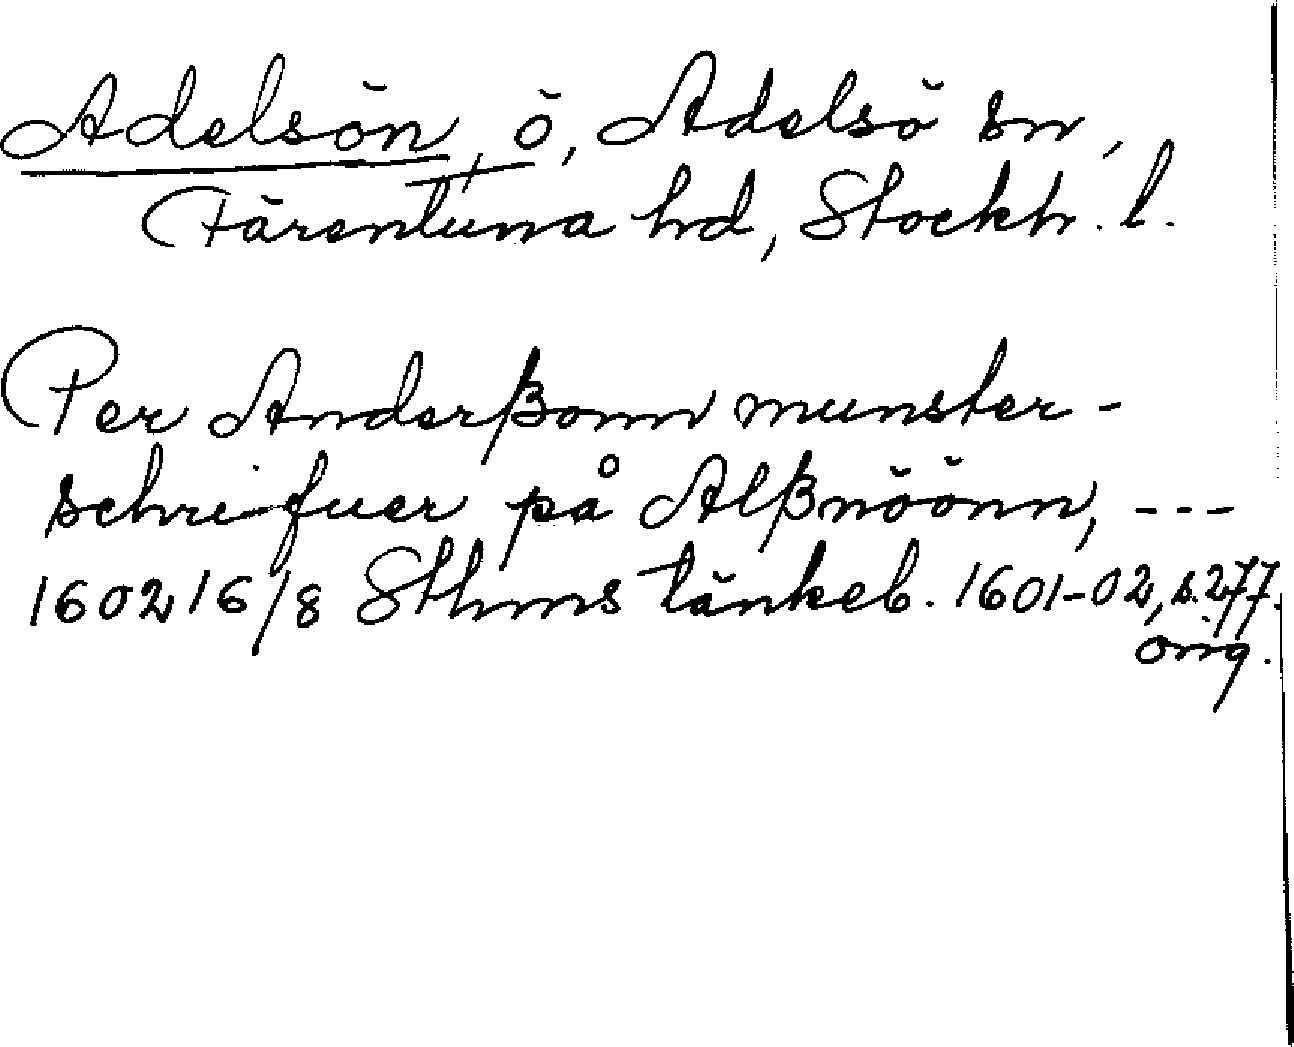 Adelsön, ö, Adelsö sn,
Färentuna hd, Stockh. l.
Per Anderßonn munster-
schrifuer på Alßnöönn, ---
1602 16/8 Sthms tänkeb. 1601-02, s. 277.
orig.